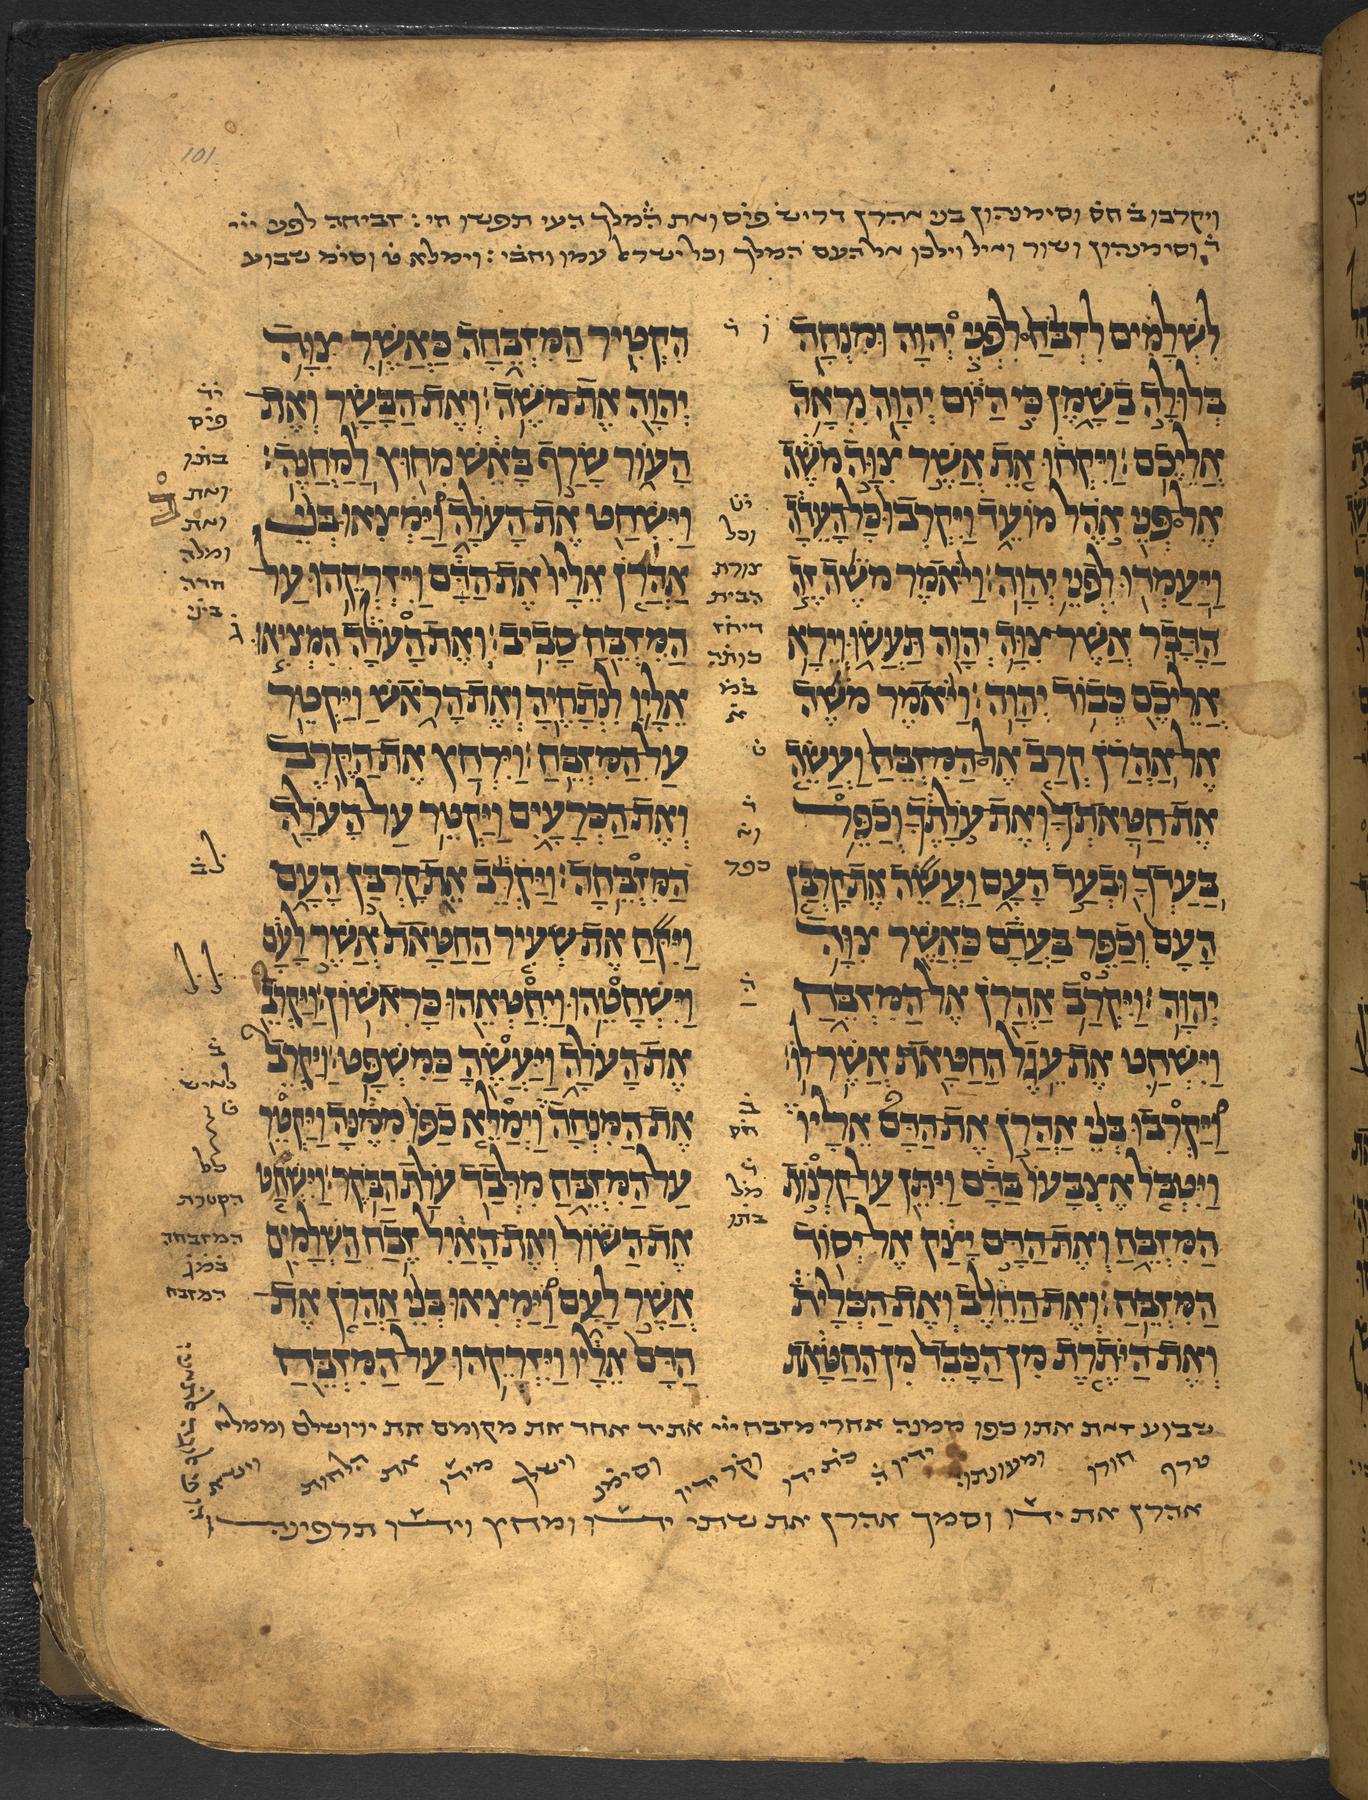 101
ויקרבו ב֗ חס֗ וסימנהון בני אהרן דריש֗ פיס֗ ואת המלך העי תפשו חי׃ זביחה לפני ייי
וסימנהון ושור ואיל וילכו אל העם המלך וכל ישראל עמו וחב֗׃ וימלא ט֗ וסימ֗ שבוע
לִשְׁלָמִים לִזְבֹּחַ לִפְנֵי יְהוָה וּמִנְחָה
בְּלוּלָה בַשָּׁמֶן כִּי הַיּוֹם יְהוָה נִרְאָה
אֲלֵיכֶם׃ וַיִּקְחוּ אֵת אֲשֶׁר צִוָּה מֹשֶׁה
אֶל־פְּנֵי אֹהֶל מוֹעֵד וַיִּקְרְבוּ כָּל־הָעֵדָה
וַיַּעַמְדוּ לִפְנֵי יְהוָה׃ וַיֹּאמֶר מֹשֶׁה זֶה
הַדָּבָר אֲשֶׁר־צִוָּה יְהוָה תַּעֲשׂוּ וְיֵרָא
אֲלֵיכֶם כְּבוֹד יְהוָה׃ וַיֹּאמֶר מֹשֶׁה
אֶל־אַהֲרֹן קְרַב אֶל־הַמִּזְבֵּחַ וַעֲשֵׂה
אֶת־חַטָּאתְךָ וְאֶת־עֹלָתֶךָ וְכַפֵּר
בַּעַדְךָ וּבְעַד הָעָם וַעֲשֵׂה אֶת־קָרְבַּן
הָעָם וְכַפֵּר בַּעֲדָם כַּאֲשֶׁר צִוָּה
יְהוָה׃ וַיִּקְרַב אַהֲרֹן אֶל־הַמִּזְבֵּחַ
וַיִּשְׁחַט אֶת־עֵגֶל הַחַטָּאת אֲשֶׁר־לוֹ׃
וַיַּקְרִבוּ בְּנֵי אַהֲרֹן אֶת־הַדָּם אֵלָיו
וַיִּטְבֹּל אֶצְבָּעוֹ בַּדָּם וַיִּתֵּן עַל־קַרְנוֹת
הַמִּזְבֵּחַ וְאֶת־הַדָּם יָצַק אֶל־יְסוֹד
הַמִּזְבֵּחַ׃ וְאֶת־הַחֵלֶב וְאֶת־הַכְּלָיֹת
וְאֶת־הַיֹּתֶרֶת מִן־הַכָּבֵד מִן־הַחַטָּאת
ו֗ ד֗
וכל
צורת
הבית
כפר
חס
מל
בתו
הִקְטִיר הַמִּזְבֵּחָה כַּאֲשֶׁר צִוָּה
יְהוָה אֶת־מֹשֶׁה׃ וְאֶת־הַבָּשָׂר וְאֶת־
הָעוֹר שָׂרַף בָּאֵשׁ מִחוּץ לַמַּחֲנֶה׃
וַיִּשְׁחַט אֶת־הָעֹלָה וַיַּמְצִאוּ בְּנֵי
אַהֲרֹן אֵלָיו אֶת־הַדָּם וַיִּזְרְקֵהוּ עַל־
הַמִּזְבֵּחַ סָבִיב׃ וְאֶת־הָעֹלָה הִמְצִיאוּ
אֵלָיו לִנְתָחֶיהָ וְאֶת־הָרֹאשׁ וַיַּקְטֵר
עַל־הַמִּזְבֵּחַ׃ וַיִּרְחַץ אֶת־הַקֶּרֶב
וְאֶת־הַכְּרָעָיִם וַיַּקְטֵר עַל־הָעֹלָה
הַמִּזְבֵּחָה׃ וַיַּקְרֵב אֵת קָרְבַּן הָעָם
וַיִּקַּח אֶת־שְׂעִיר הַחַטָּאת אֲשֶׁר לָעָם
וַיִּשְׁחָטֵהוּ וַיְחַטְּאֵהוּ כָּרִאשׁוֹן׃ וַיַּקְרֵב
אֶת־הָעֹלָה וַיַּעֲשֶׂהָ כַּמִּשְׁפָּט׃ וַיַּקְרֵב
אֶת־הַמִּנְחָה וַיְמַלֵּא כַפּוֹ מִמֶּנָּה וַיַּקְטֵר
עַל־הַמִּזְבֵּחַ מִלְּבַד עֹלַת הַבֹּקֶר׃ וַיִּשְׁחַט
אֶת־הַשּׁוֹר וְאֶת־הָאַיִל זֶבַח הַשְּׁלָמִים
אֲשֶׁר לָעָם וַיַּמְצִאוּ בְּנֵי אַהֲרֹן אֶת־
הַדָּם אֵלָיו וַיִּזְרְקֵהוּ עַל־הַמִּזְבֵּחַ
יד֗
פיס֗
בתו
ואת
ואת
ומלה
חדה
ביני
ג֗
ל ב֗
ל֗ ל֗
ב֗
לאיש
ט֗
הקטרת
המזבחה
המזבח
שבוע זאת אתו כפו ממנה אחרי מזבח ייי את יד אחד את מקומם את ירושלם וממלא
טרף חורו ומעונתו׃ ידיו ג֗ כת ידו וקד ידיו וסימ֗נ וישלך מידו את הלחות וישא
אהרן את ידו וסמך אהרן את שתי ידו ומחץ וידו תרפינה